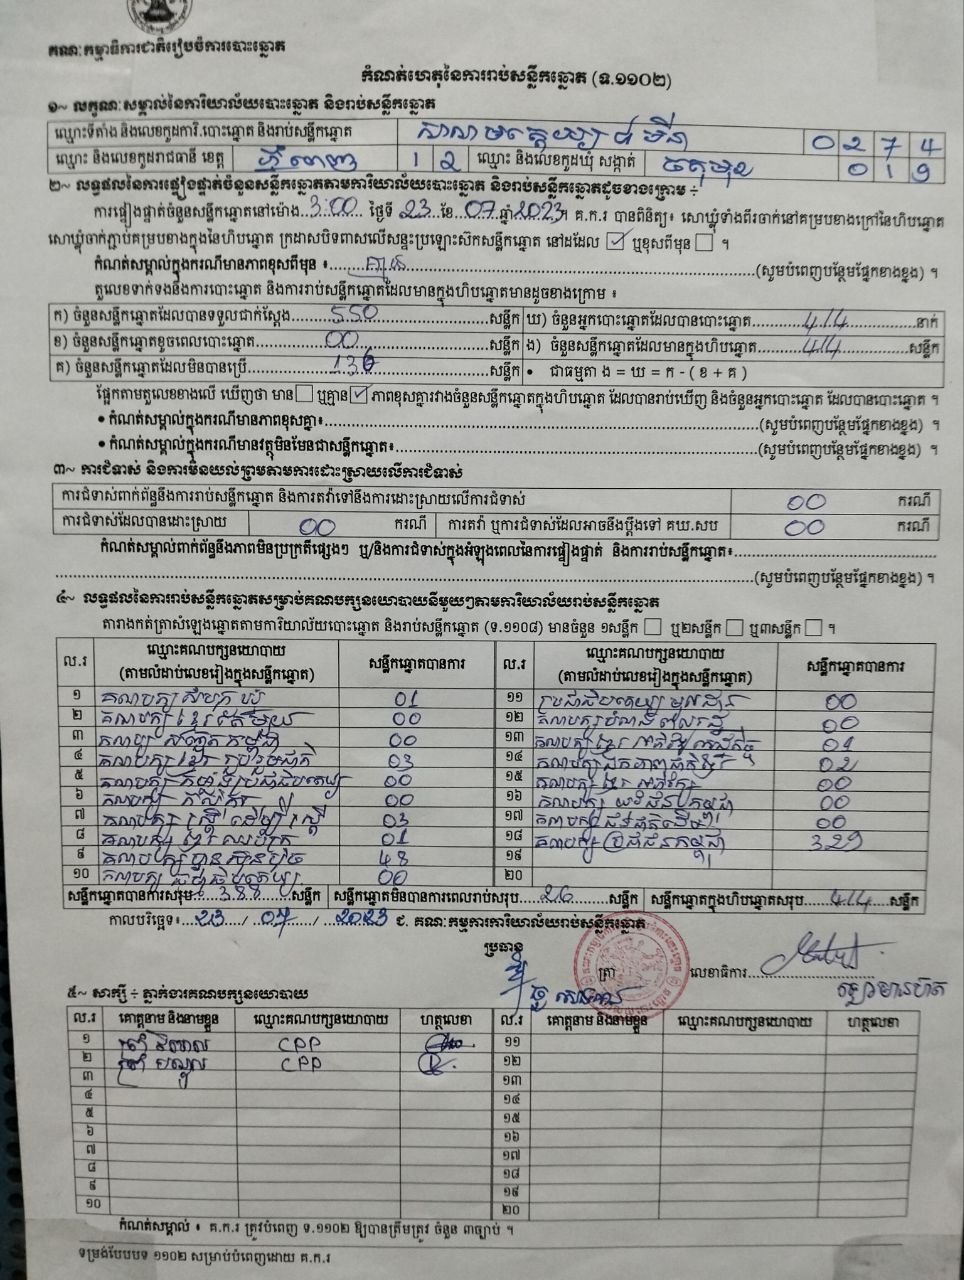 គណៈកម្មាធិការជាតិរៀបចំការបោះឆ្នោត
កំណត់ហេតុនៃការរាប់សន្លឹកឆ្នោត (ទ.១១០២)
១~ លក្ខណៈសម្គាល់នៃការិយាល័យបោះឆ្នោត និងរាប់សន្លឹកឆ្នោត
ឈ្មោះទីតាំង និងលេខកូដការិ.បោះឆ្នោត និងរាប់សន្លឹកឆ្នោត 0 2 7 4
ឈ្មោះ និងលេខកូដរាជធានី ខេត្ត ភ្នំពេញ 1 2 ឈ្មោះ និងលេខកូដឃុំ សង្កាត់ ចតុមុខ 0 1 9
២~ លទ្ធផលនៃការផ្ទៀងផ្ទាត់ចំនួនសន្លឹកឆ្នោតតាមការិយាល័យបោះឆ្នោត និងរាប់សន្លឹកឆ្នោតដូចខាងក្រោម ÷
ការផ្ទៀងផ្ទាត់ចំនួនសន្លឹកឆ្នោតនៅម៉ោង..3:00 ថ្ងៃទី 23 ខែ 07 ឆ្នាំ 2023។ គ.ក.រ បានពិនិត្យ៖ សោឃ្លុំទាំងពីរចាក់នៅគម្របខាងក្រៅនៃហិបឆ្នោត
សោឃ្លុំចាក់ភ្ជាប់គម្របខាងក្នុងនៃហិបឆ្នោត ក្រដាសបិទពាសលើសន្ទះប្រឡោះស៊កសន្លឹកឆ្នោត នៅដដែល ☑ ឬខុសពីមុន ☐ ។
កំណត់សម្គាល់ក្នុងករណីមានភាពខុសពីមុន ៖ គ្មាន (សូមបំពេញបន្ថែមផ្នែកខាងខ្នង) ។
តួលេខទាក់ទងនឹងការបោះឆ្នោត និងការរាប់សន្លឹកឆ្នោតដែលមានក្នុងហិបឆ្នោតមានដូចខាងក្រោម ៖
ក) ចំនួនសន្លឹកឆ្នោតដែលបានទទួលជាក់ស្តែង 550 សន្លឹក ឃ) ចំនួនអ្នកបោះឆ្នោតដែលបានបោះឆ្នោត 414 នាក់
ខ) ចំនួនសន្លឹកឆ្នោតខូចពេលបោះឆ្នោត 00 សន្លឹក ង) ចំនួនសន្លឹកឆ្នោតដែលមានក្នុងហិបឆ្នោត 414 សន្លឹក
គ) ចំនួនសន្លឹកឆ្នោតដែលមិនបានប្រើ 136 សន្លឹក • ជាធម្មតា ង = ឃ = ក - ( ខ + គ )
ផ្អែកតាមតួលេខខាងលើ ឃើញថា មាន ☐ ឬគ្មាន ☑ ភាពខុសគ្នារវាងចំនួនសន្លឹកឆ្នោតក្នុងហិបឆ្នោត ដែលបានរាប់ឃើញ និងចំនួនអ្នកបោះឆ្នោត ដែលបានបោះឆ្នោត ។
• កំណត់សម្គាល់ក្នុងករណីមានភាពខុសគ្នា៖ (សូមបំពេញបន្ថែមផ្នែកខាងខ្នង) ។
• កំណត់សម្គាល់ក្នុងករណីមានវត្ថុមិនមែនជាសន្លឹកឆ្នោត៖ (សូមបំពេញបន្ថែមផ្នែកខាងខ្នង) ។
៣~ ការជំទាស់ និងការមិនយល់ព្រមតាមការដោះស្រាយលើការជំទាស់
ការជំទាស់ពាក់ព័ន្ធនឹងការរាប់សន្លឹកឆ្នោត និងការតវ៉ាទៅនឹងការដោះស្រាយលើការជំទាស់ 00 ករណី
ការជំទាស់ដែលបានដោះស្រាយ 00 ករណី ការតវ៉ា ឬការជំទាស់ដែលអាចនឹងប្តឹងទៅ គឃ.សប 00 ករណី
កំណត់សម្គាល់ពាក់ព័ន្ធនឹងភាពមិនប្រក្រតីផ្សេងៗ ឬ/និងការជំទាស់ក្នុងអំឡុងពេលនៃការផ្ទៀងផ្ទាត់ និងការរាប់សន្លឹកឆ្នោត៖
(សូមបំពេញបន្ថែមផ្នែកខាងខ្នង) ។
៤~ លទ្ធផលនៃការរាប់សន្លឹកឆ្នោតសម្រាប់គណបក្សនយោបាយនីមួយៗតាមការិយាល័យរាប់សន្លឹកឆ្នោត
តារាងកត់ត្រាសំឡេងឆ្នោតតាមការិយាល័យបោះឆ្នោត និងរាប់សន្លឹកឆ្នោត (ទ.១១០៨) មានចំនួន ១សន្លឹក ☐ ឬ២សន្លឹក ☐ ឬ៣សន្លឹក ☐ ។
ល.រ ឈ្មោះគណបក្សនយោបាយ សន្លឹកឆ្នោតបានការ ល.រ ឈ្មោះគណបក្សនយោបាយ សន្លឹកឆ្នោតបានការ
(តាមលំដាប់លេខរៀងក្នុងសន្លឹកឆ្នោត) (តាមលំដាប់លេខរៀងក្នុងសន្លឹកឆ្នោត)
១ គណបក្ស 01 ១១ 00
២ គណបក្ស ខ្មែរតែមួយ 00 ១២ គណបក្ស 00
៣ គណបក្ស 00 ១៣ គណបក្ស ខ្មែរ 01
៤ គណបក្ស ខ្មែររួបរួមជាតិ 03 ១៤ គណបក្ស 02
៥ គណបក្ស កម្លាំងប្រជាធិបតេយ្យ 00 ១៥ គណបក្ស ខ្មែរ 00
៦ គណបក្ស កសិករ 00 ១៦ គណបក្ស យុវជនកម្ពុជា 00
៧ គណបក្ស ស្ត្រីដើម្បីស្ត្រី 03 ១៧ គណបក្ស 00
៨ គណបក្ស 01 ១៨ គណបក្ស ប្រជាជនកម្ពុជា 329
៩ គណបក្ស ហ្វ៊ុនស៊ិនប៉ិច 48 ១៩
១០ គណបក្ស ធម្មាធិបតេយ្យ 00 ២០
សន្លឹកឆ្នោតបានការសរុប 388 សន្លឹក សន្លឹកឆ្នោតមិនបានការពេលរាប់សរុប 26 សន្លឹក សន្លឹកឆ្នោតក្នុងហិបឆ្នោតសរុប 414 សន្លឹក
កាលបរិច្ឆេទ៖ 23 / 07 / 2023 ជ. គណៈកម្មការការិយាល័យរាប់សន្លឹកឆ្នោត
ប្រធាន
ត្រា លេខាធិការ
៥~ សាក្សី ÷ ភ្នាក់ងារគណបក្សនយោបាយ
ល.រ គោត្តនាម និងនាមខ្លួន ឈ្មោះគណបក្សនយោបាយ ហត្ថលេខា ល.រ គោត្តនាម និងនាមខ្លួន ឈ្មោះគណបក្សនយោបាយ ហត្ថលេខា
១ CPP ១១
២ CPP ១២
៣ ១៣
៤ ១៤
៥ ១៥
៦ ១៦
៧ ១៧
៨ ១៨
៩ ១៩
១០ ២០
កំណត់សម្គាល់ • គ.ក.រ ត្រូវបំពេញ ទ.១១០២ ឱ្យបានត្រឹមត្រូវ ចំនួន ៣ច្បាប់ ។
ទម្រង់បែបបទ ១១០២ សម្រាប់បំពេញដោយ គ.ក.រ